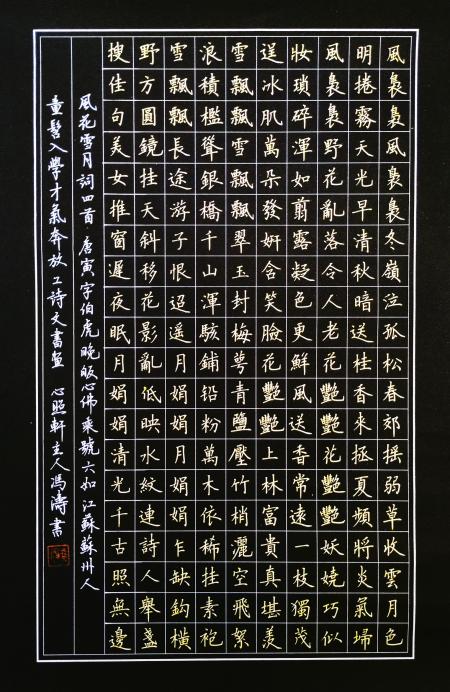 風裊裊風裊裊冬嶺泣孤松春郊搖弱草收雲月色
明捲霧天光早清秋暗送桂香來拯夏頻將炎氣埽
風裊裊野花亂落令人老花艷艷花艷艷妖嬈巧似
妝瑣碎渾如翦露凝色更鮮風送香常遠一枝獨茂
逞冰肌萬朵發妍含笑臉花艷艷上林富貴真堪羨
雪飄飄雪飄飄翠玉封梅萼青鹽壓竹梢灑空飛絮
浪積檻聳銀橋千山渾駭鋪鉛粉萬木依稀挂素袍
雪飄飄長途游子恨迢遙月娟娟月娟娟乍缺鈎橫
野方圓鏡挂天斜移花影亂低映水紋連詩人舉盞
搜佳句美女推窗遲夜眠月娟娟清光千古照無邊
風花雪月詞四首 唐寅字伯虎 晚皈心佛乘號六如 江蘇蘇州人
童髫入學才氣奔放工詩文書畫 心照軒主人馮濤書